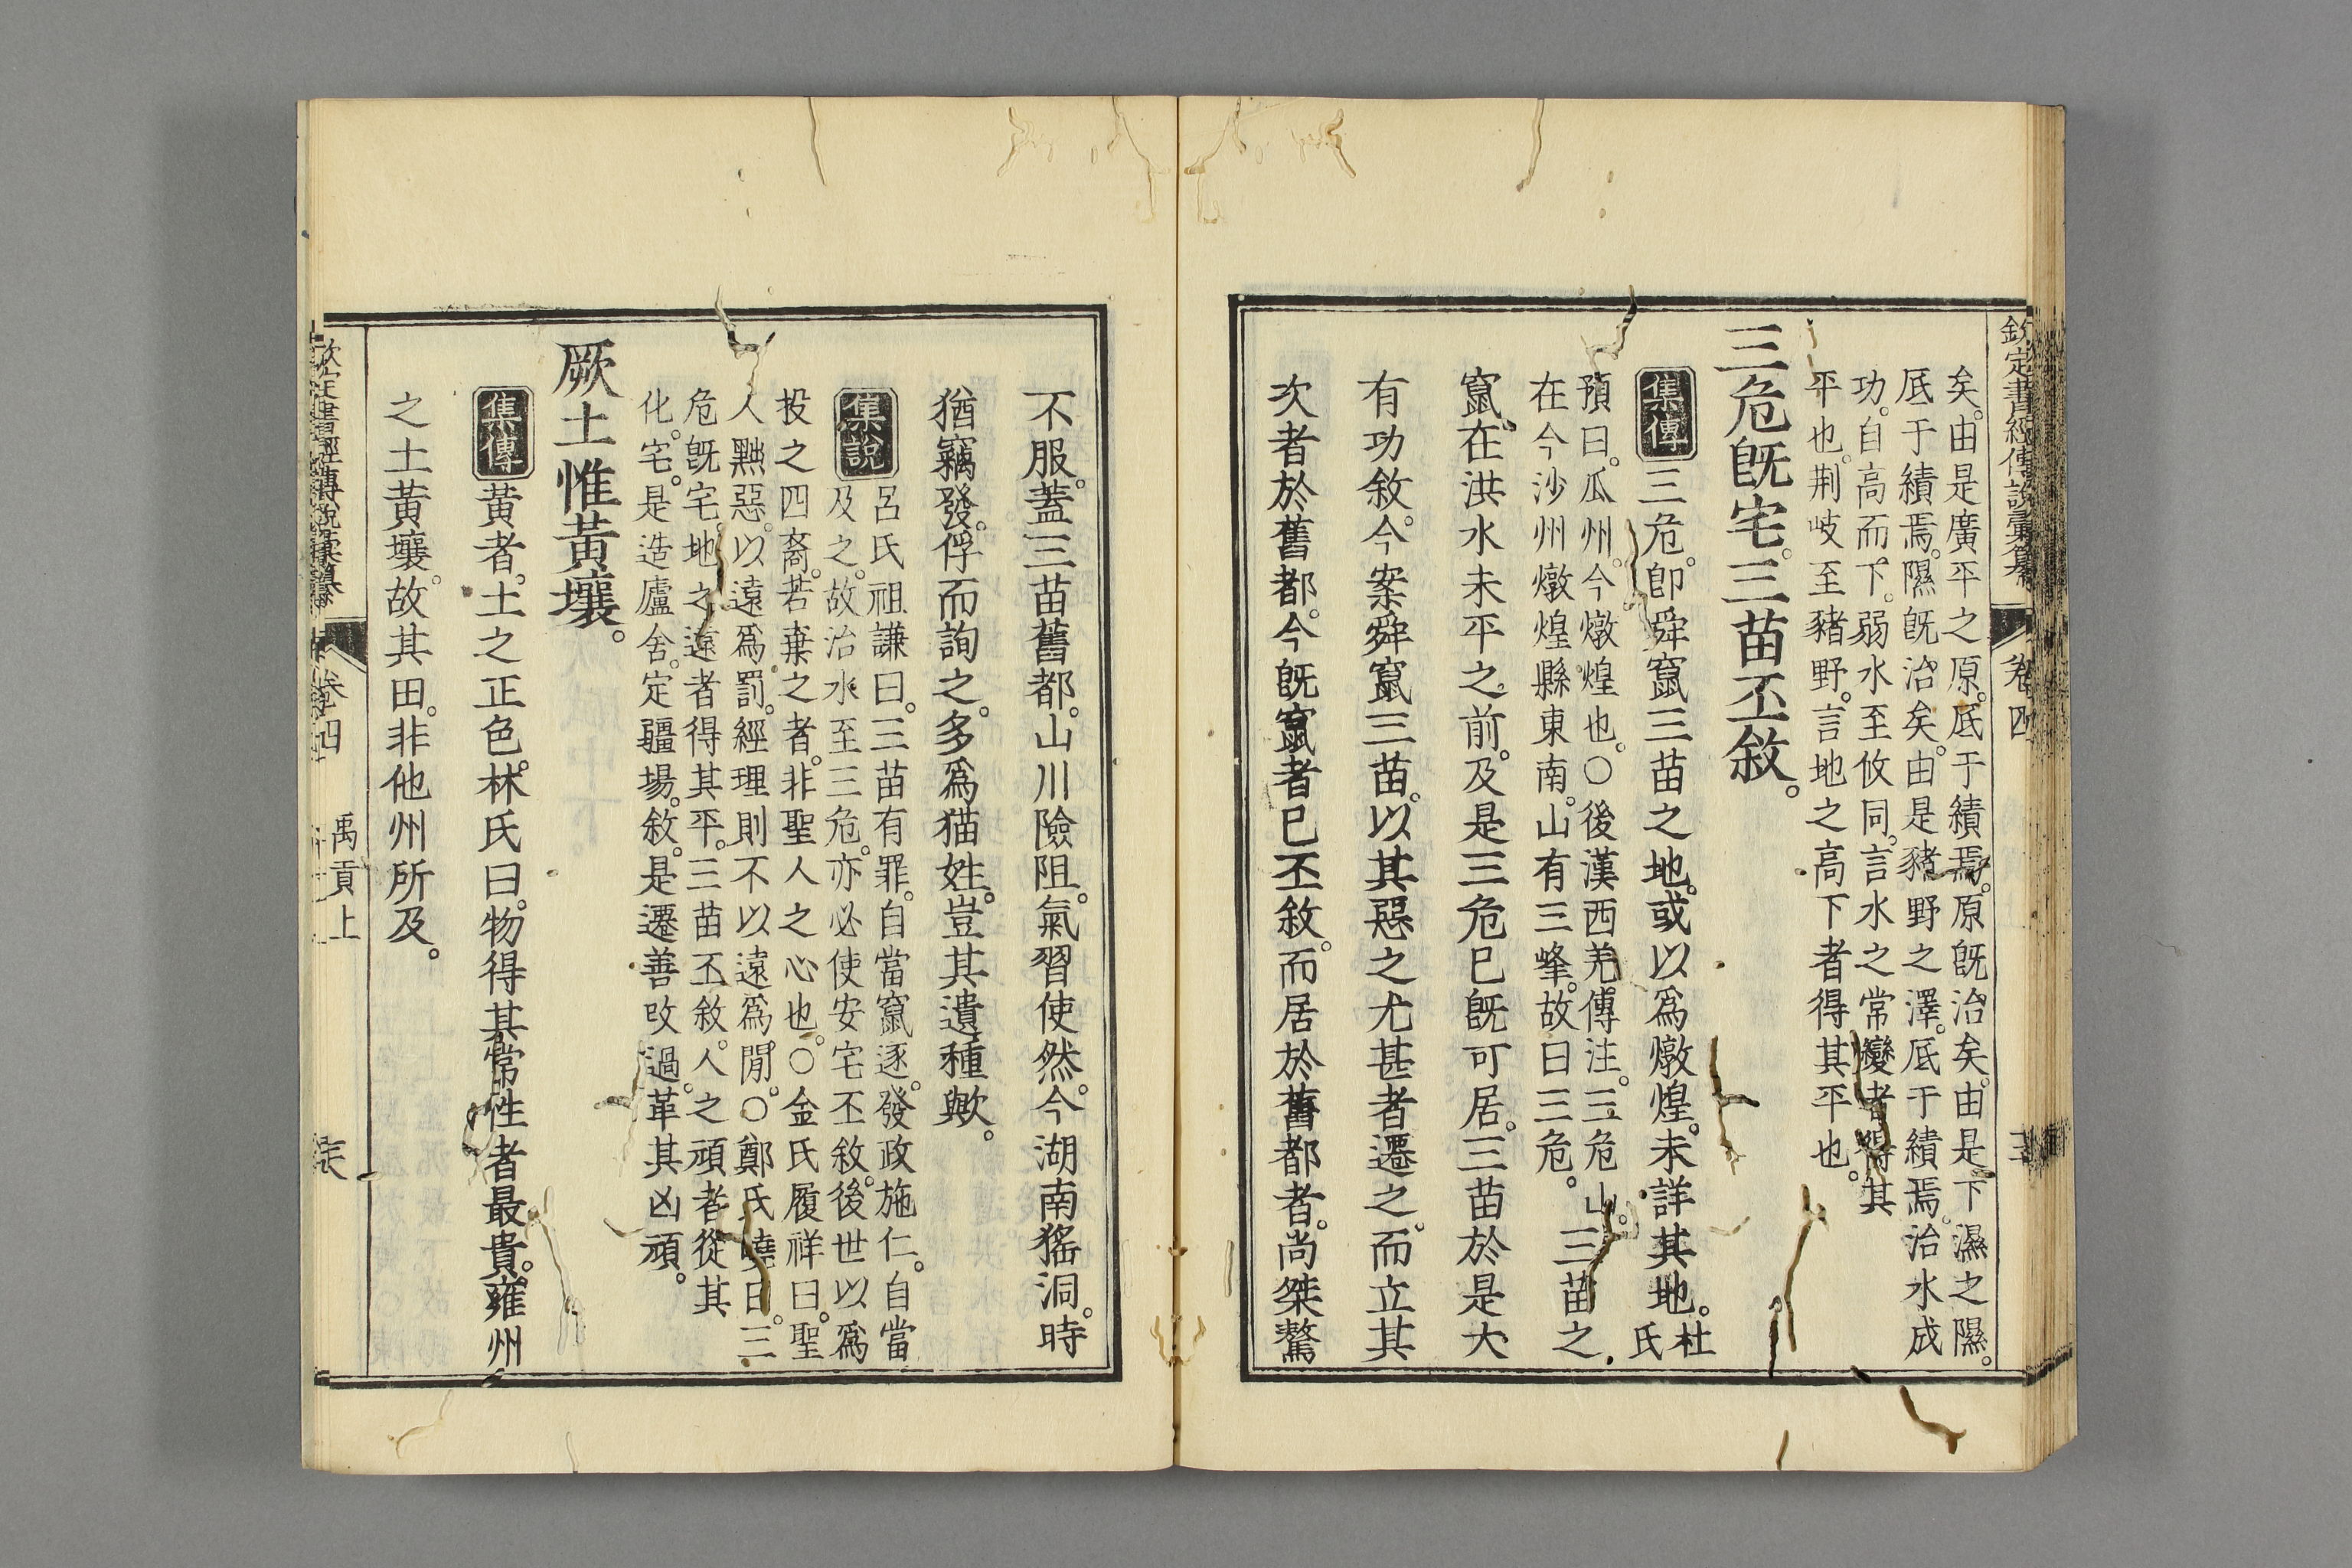 欽定書經傳說彙纂 卷四
矣。由是廣平之原。厎于績焉。原旣治矣。由是下濕之隰。
厎于績焉。隰旣治矣。由是豬野之澤。厎于績焉。治水成
功。自高而下。弱水至攸同。言水之常變者得其
平也。荆岐至豬野。言地之高下者得其平也。
三危旣宅。三苗丕敘。
集傳 三危。卽舜竄三苗之地。或以爲燉煌。未詳其地。杜氏
預曰。瓜州。今燉煌也。〇後漢西羌傳注。三危山。三苗之
在今沙州燉煌縣東南。山有三峰。故曰三危。
竄。在洪水未平之前。及是三危已旣可居。三苗於是大
有功敘。今案舜竄三苗。以其惡之尤甚者遷之。而立其
次者於舊都。今旣竄者已丕敘。而居於舊都者。尚桀驁
不服。蓋三苗舊都。山川險阻。氣習使然。今湖南猺洞。時
猶竊發。俘而詢之。多爲猫姓。豈其遺種歟。
集說 呂氏祖謙曰。三苗有罪。自當竄逐。發政施仁。自當
及之。故治水至三危。亦必使安宅丕敘。後世以爲
投之四裔。若棄之者。非聖人之心也。〇金氏履祥曰。聖
人黜惡。以遠爲罰。經理則不以遠爲閒。〇鄭氏曉曰。三
危旣宅。地之遠者得其平。三苗丕敘。人之頑者從其
化。宅。是造廬舍。定疆場。敘。是遷善攺過。革其凶頑。
厥土惟黃壤。
集傳 黃者。土之正色。林氏曰。物得其常性者最貴。雍州
之土黃壤。故其田。非他州所及。
欽定書經傳說彙纂 卷四 禹貢上